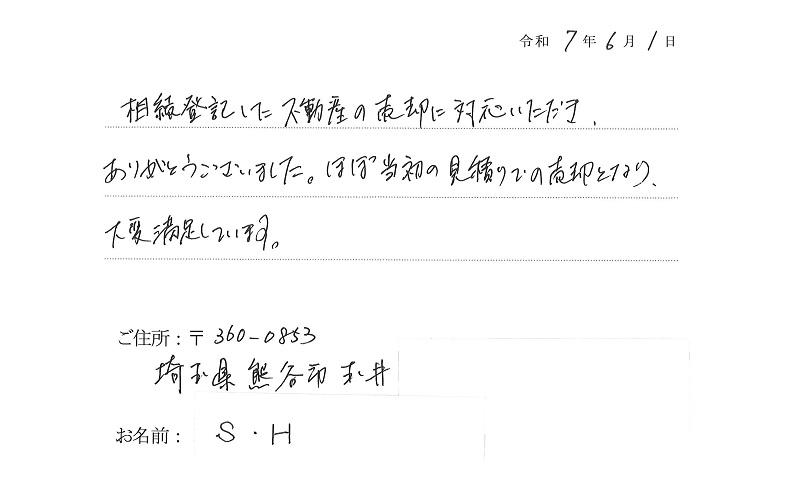 令和 7 年 6 月 1 日
相続登記した不動産の売却に対応いただき、
ありがとうございました。ほぼ当初の見積りでの売却となり、
大変満足しています。
ご住所：〒 360-0853
埼玉県熊谷市玉井
お名前： S・H